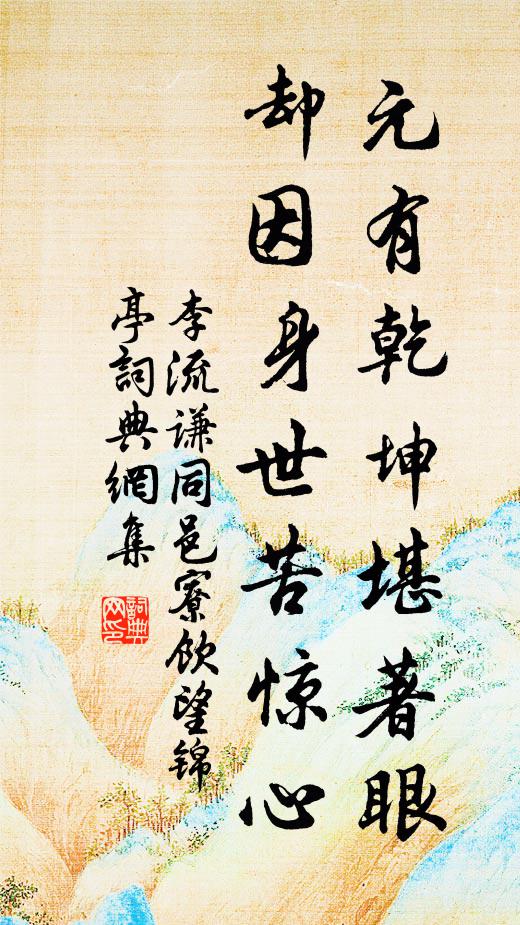 元有乾坤堪著眼
却因身世苦惊心
李流谦同邑寮饮望锦
亭詞典網集
詞典
网印